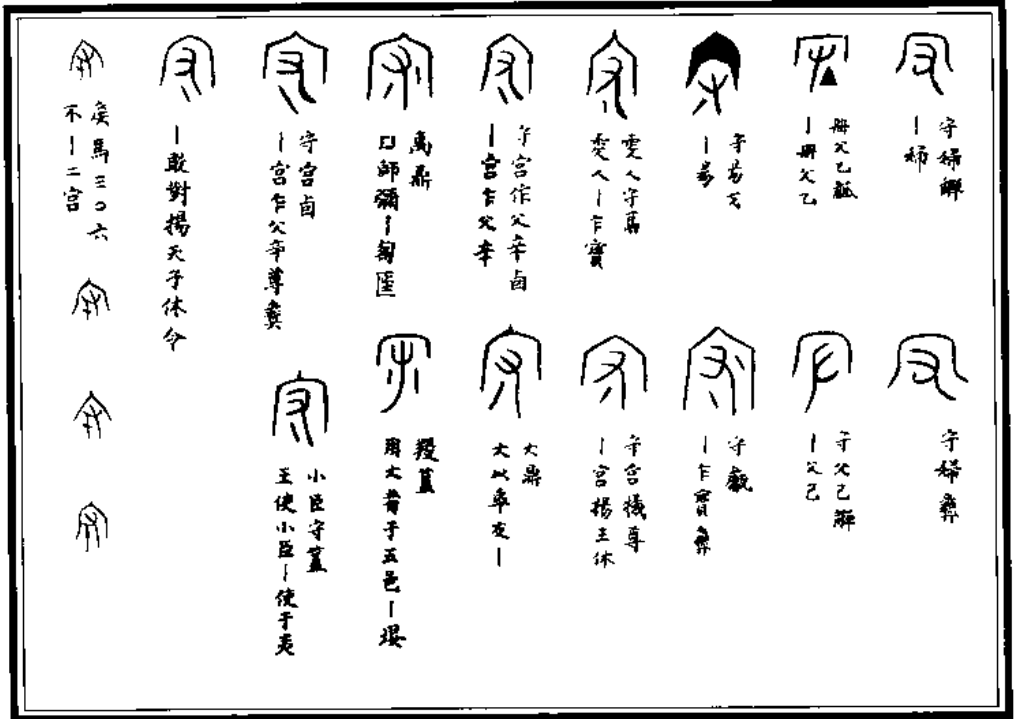 守婦觶
丨婦
守婦彝
冊父乙觚
丨冊父乙
守父己觶
丨父己
守昜戈
丨昜
守觑
丨乍寶彝
雯人守鬲
雯人丨乍寶
守宮犧尊
丨宮揚王休
守宮作父辛卣
丨宮乍父辛
大鼎
大以氒友丨
鬲鼎
口師彌丨匐匽
㝨簋
用大𤰇于五邑丨堰
守宮卣
丨宮乍父辛尊彝
小臣守簋
王使小臣丨使于夷
丨敢對揚天子休令
侯馬三〇六
不丨二宮